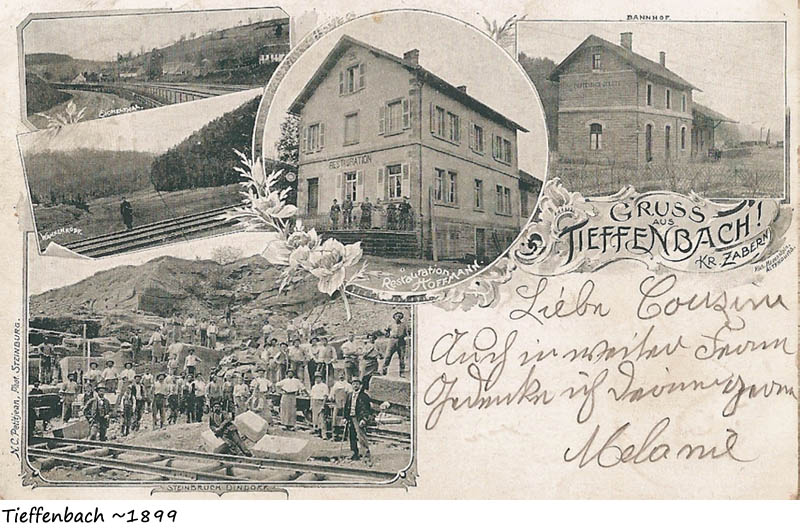 BAHNHOF.
RESTAURATION
Restauration HOFFMANN.
GRUSS
AUS
TIEFFENBACH!
KR. ZABERN
N.C. Petitjean, Phot. STEINBURG.
STEINBRUCH DINDORF.
Liebe Cousine
Auch in weiter Fern
Gedenke ich Deiner gern
Melanie
Tieffenbach ~1899